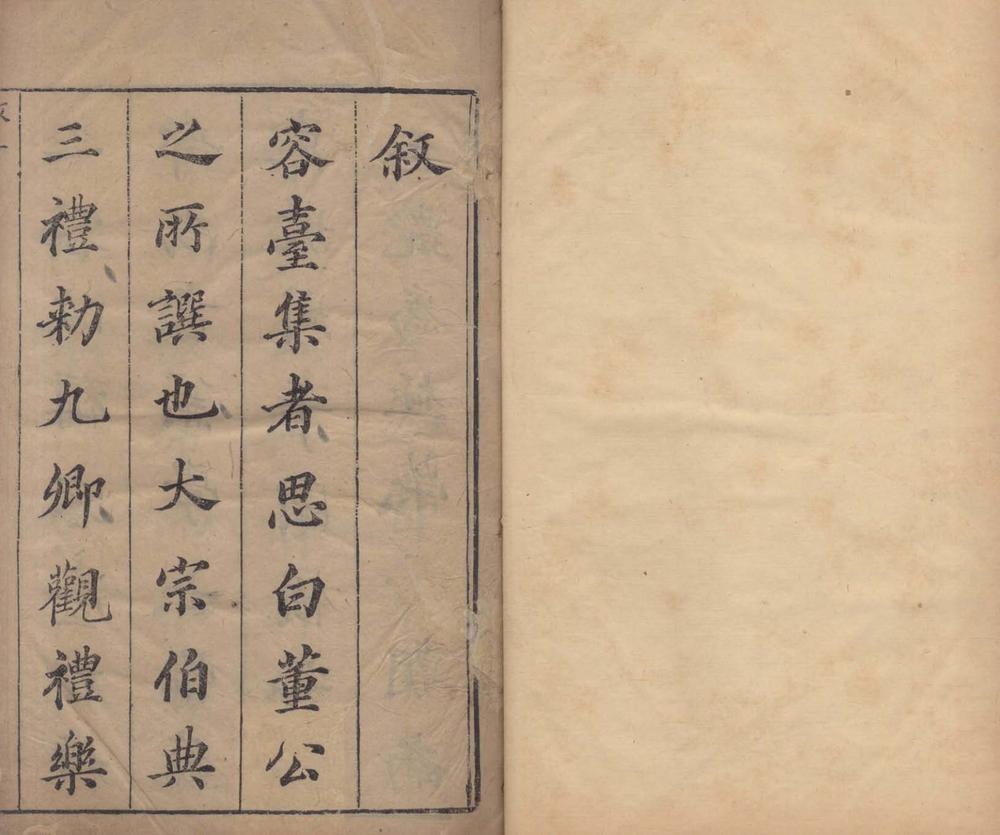 叙
容臺集者思白董公
之所譔也大宗伯典
三禮勑九卿觀禮樂